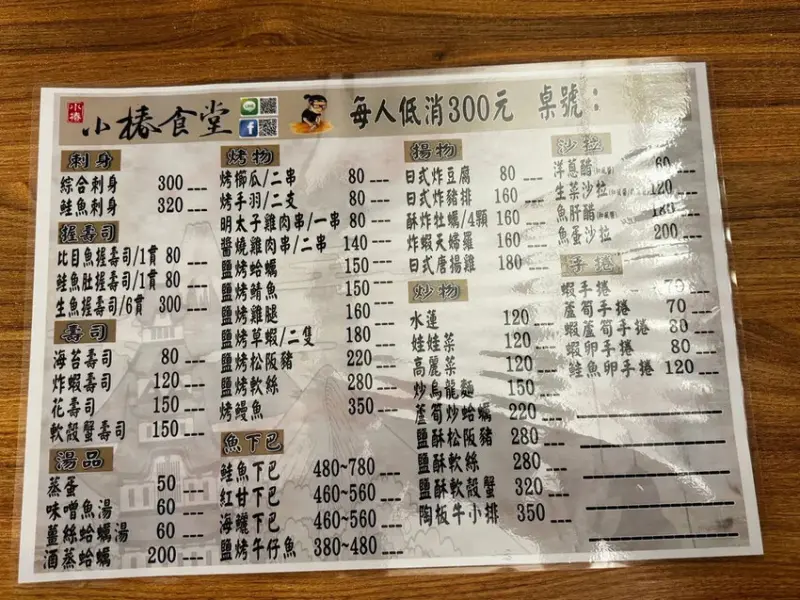 小椿
小椿食堂
每人低消300元 桌號：
刺身
綜合刺身 300
鮭魚刺身 320
握壽司
比目魚握壽司/1貫 80
鮭魚肚握壽司/1貫 80
生魚握壽司/6貫 300
壽司
海苔壽司 80
炸蝦壽司 120
花壽司 150
軟殼蟹壽司 150
湯品
蒸蛋 50
味噌魚湯 60
薑絲蛤蠣湯 60
酒蒸蛤蠣 200
烤物
烤櫛瓜/二串 80
烤手羽/二支 80
明太子雞肉串/一串 80
醬燒雞肉串/二串 140
鹽烤蛤蠣 150
鹽烤鯖魚 150
鹽烤雞腿 160
鹽烤草蝦/二隻 180
鹽烤松阪豬 220
鹽烤軟絲 280
烤鰻魚 350
魚下巴
鮭魚下巴 480~780
紅甘下巴 460~560
海鱺下巴 460~560
鹽烤午仔魚 380~480
揚物
日式炸豆腐 80
日式炸豬排 160
酥炸牡蠣/4顆 160
炸蝦天婦羅 160
日式唐揚雞 180
炒物
水蓮 120
娃娃菜 120
高麗菜 120
炒烏龍麵 150
蘆筍炒蛤蠣 220
鹽酥松阪豬 280
鹽酥軟絲 280
鹽酥軟殼蟹 320
陶板牛小排 350
沙拉
洋蔥醋 60
生菜沙拉 120
魚肝醋 180
魚蛋沙拉 200
手捲
蝦手捲 70
蘆筍手捲 70
蝦蘆筍手捲 80
蝦卵手捲 80
鮭魚卵手捲 120